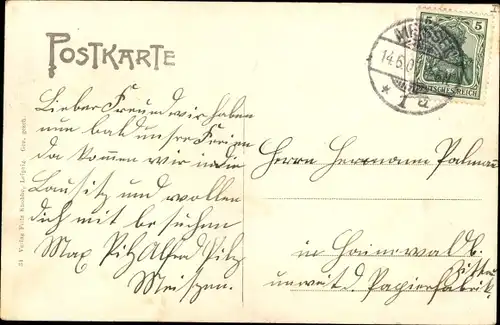 POSTKARTE
5
MEISSEN
14.6.0
DEUTSCHES REICH
* 1 a
Lieber Freund wir haben
nun bald unsre Ferien
da kommen wir in die
Lausitz und wollen
dich mit besuchen
Max Pilz Alfred Pilz
Meißen.
Herrn Hermann Palman
in Hainewalde b.
unweit d. Papierfabrik.
34 Verlag Fritz Leipzig. Ges. gesch.